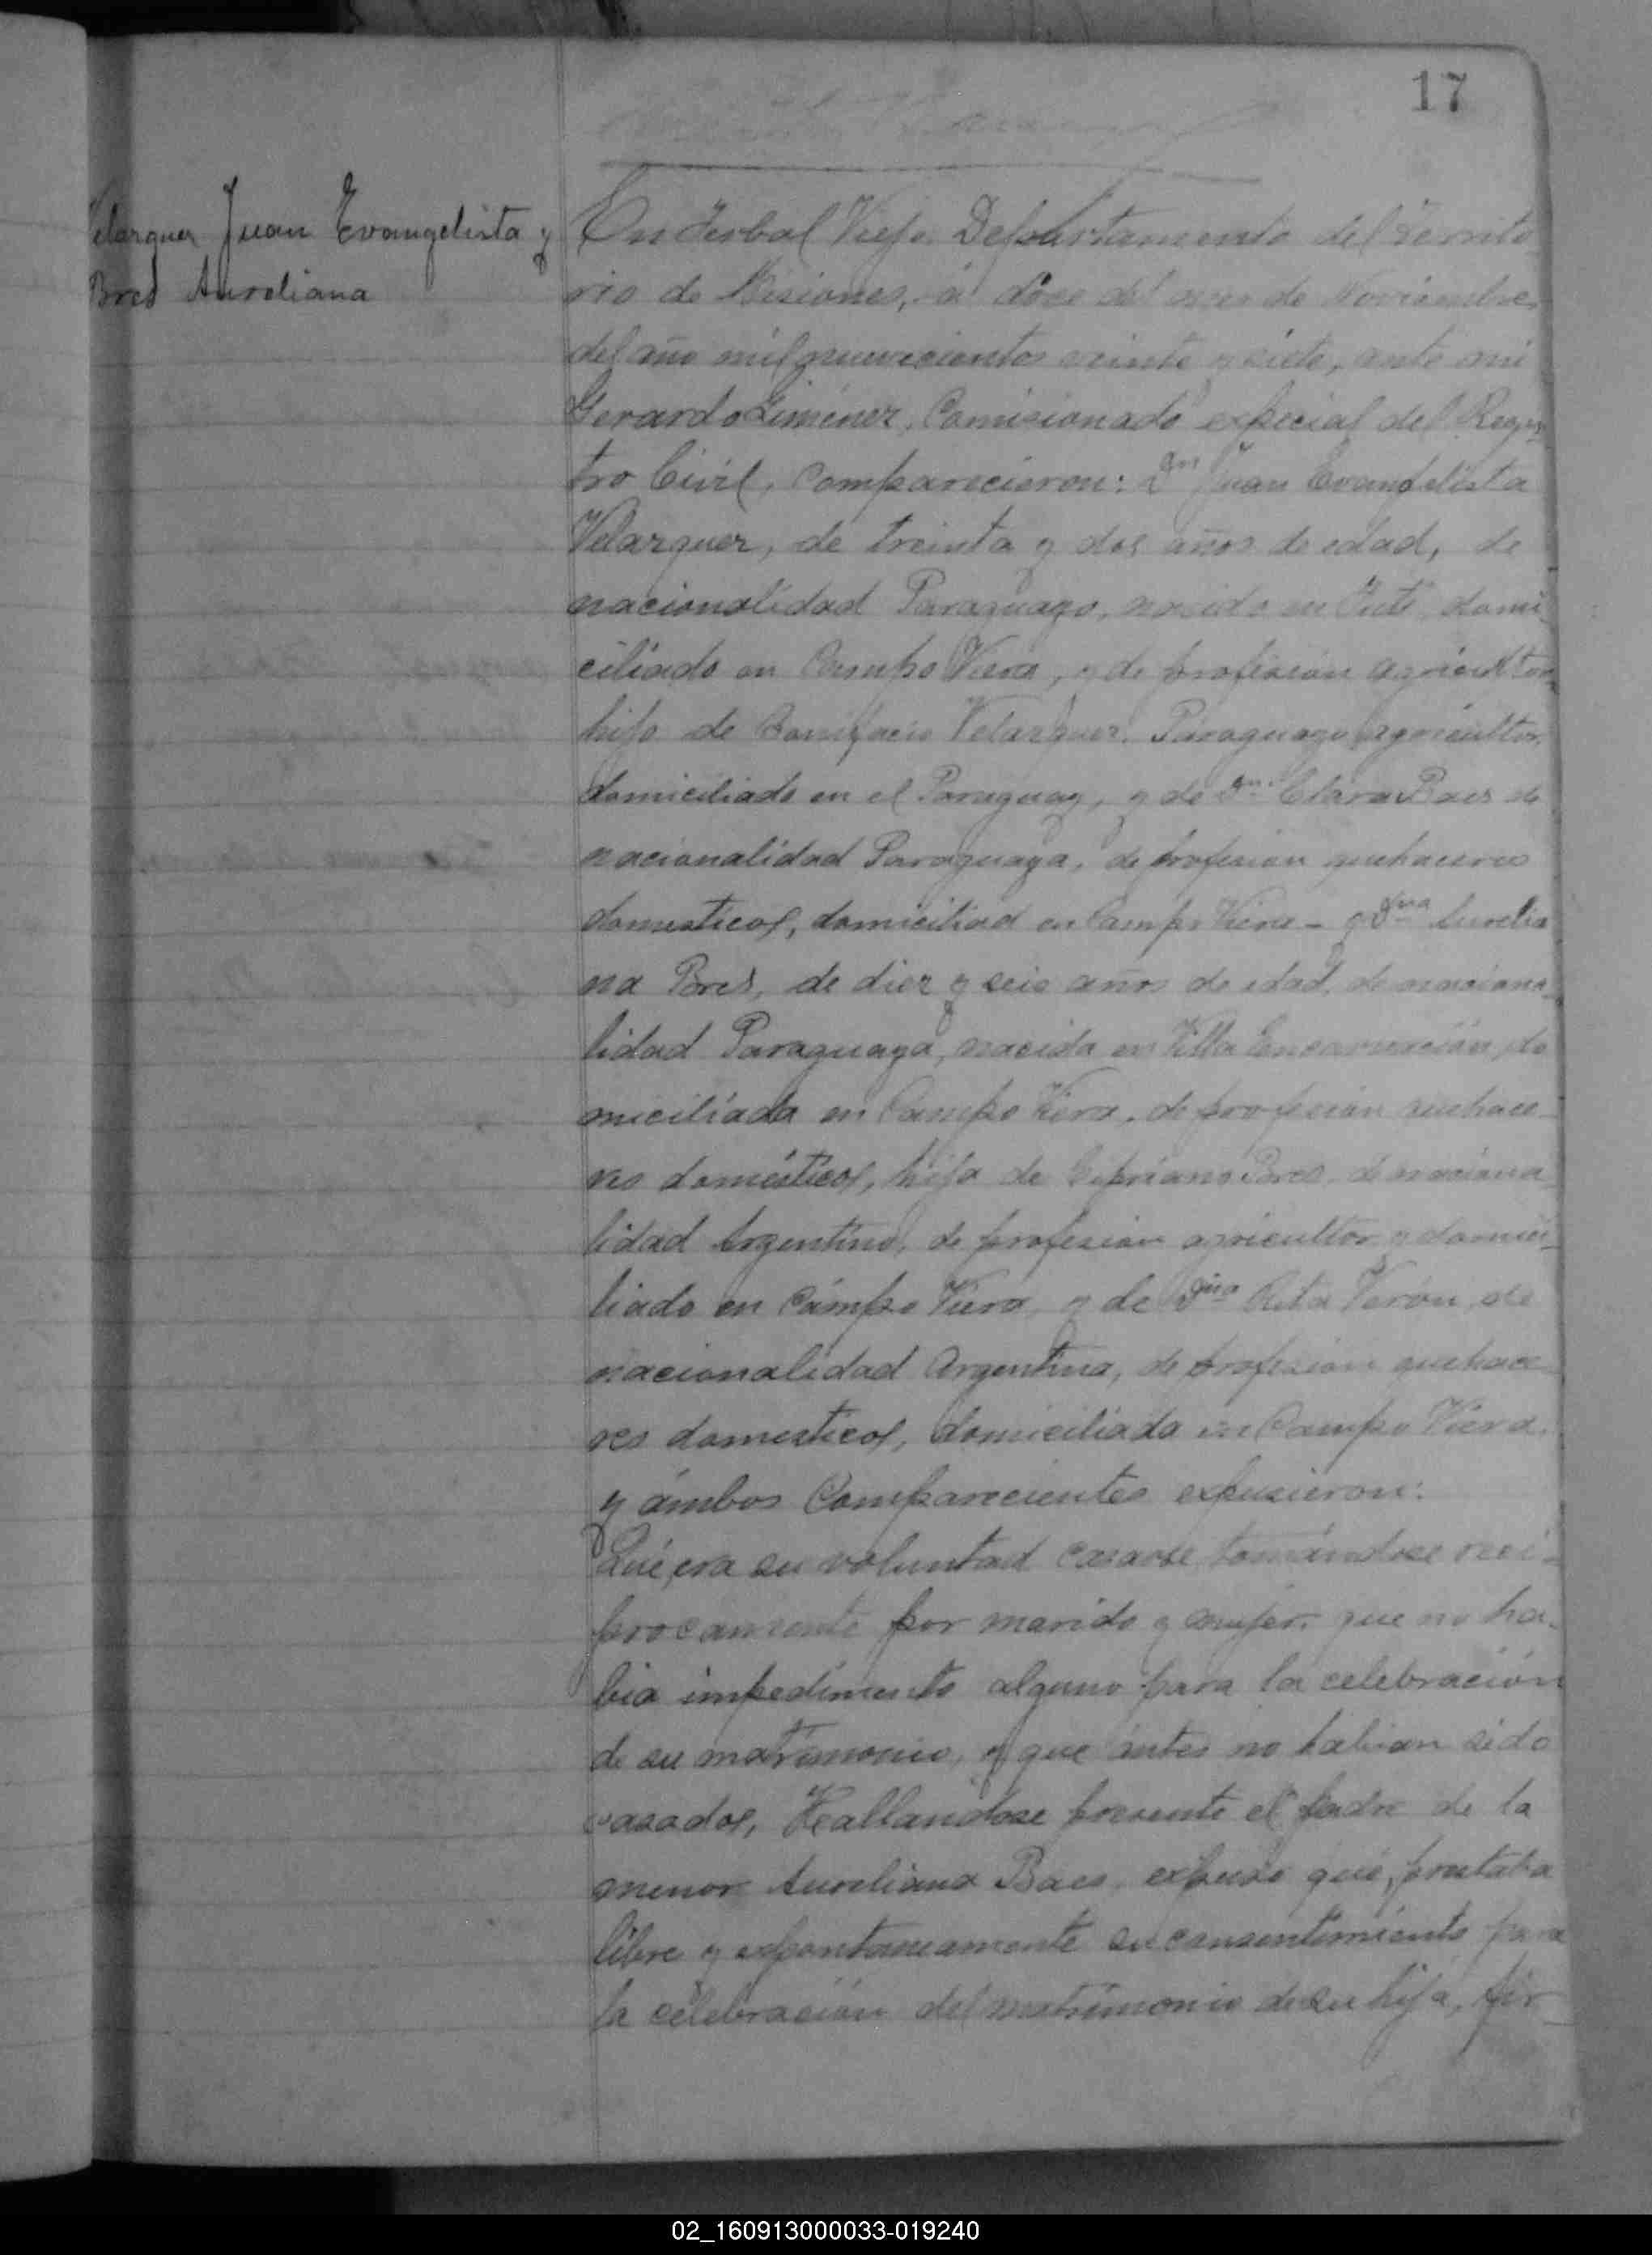 17
Velarquer Juan Evangelista y
Bres Aureliana
En Yerbal Viejo Departamento del Territo
rio de Misiones, á doce del mes de Noviembre
del año mil nuvecientos veinte y siete, ante mi
Gerardo Gimenez, Comisionado especial del Regis
tro Civil, Comparecieron: Dn Juan Evangelista
Velarquer, de treinta y dos años de edad, de
nacionalidad Paraguayo, nacido en Yuti domi
ciliado en Campo Viera, y de profesion agricultor
hijo de Bonifacio Velarquer. Paraguayo agricultor,
domiciliado en el Paraguay, y de Dna Clara Baes de
nacionalidad Paraguaya, de profesion quehaceres
domesticos, domiciliad en Campo Viera - y Dna Aurelia
na Bres, de diez y seis años de edad, de naciona-
lidad Paraguaya, nacida en Villa Encarnación, do
miciliada en Campo Viera, de profesion quehace
res domésticos, hija de Cipriano Bres, de naciona
lidad Argentino, de profesion agricultor y domici-
liado en Cámpo Viera y de Dña Rita Verón, de
nacionalidad Argentina, de profesion quehace
res domesticos, domiciliada en Campo Viera,
y ámbos Comparecientes expusieron:
Qué, era su voluntad casarse tomándose reci-
procamente por marido y mujer, que no ha-
bia impedimento alguno para la celebración
de su matrimonio, y que ántes no habian sido
casados, Hallandose presente el padre de la
menor Aureliana Baes expuso qué, prestaba
libre y expontaneamente su consentimiento para
la celebración del matrimonio de su hija, fir-
02_160913000033-019240